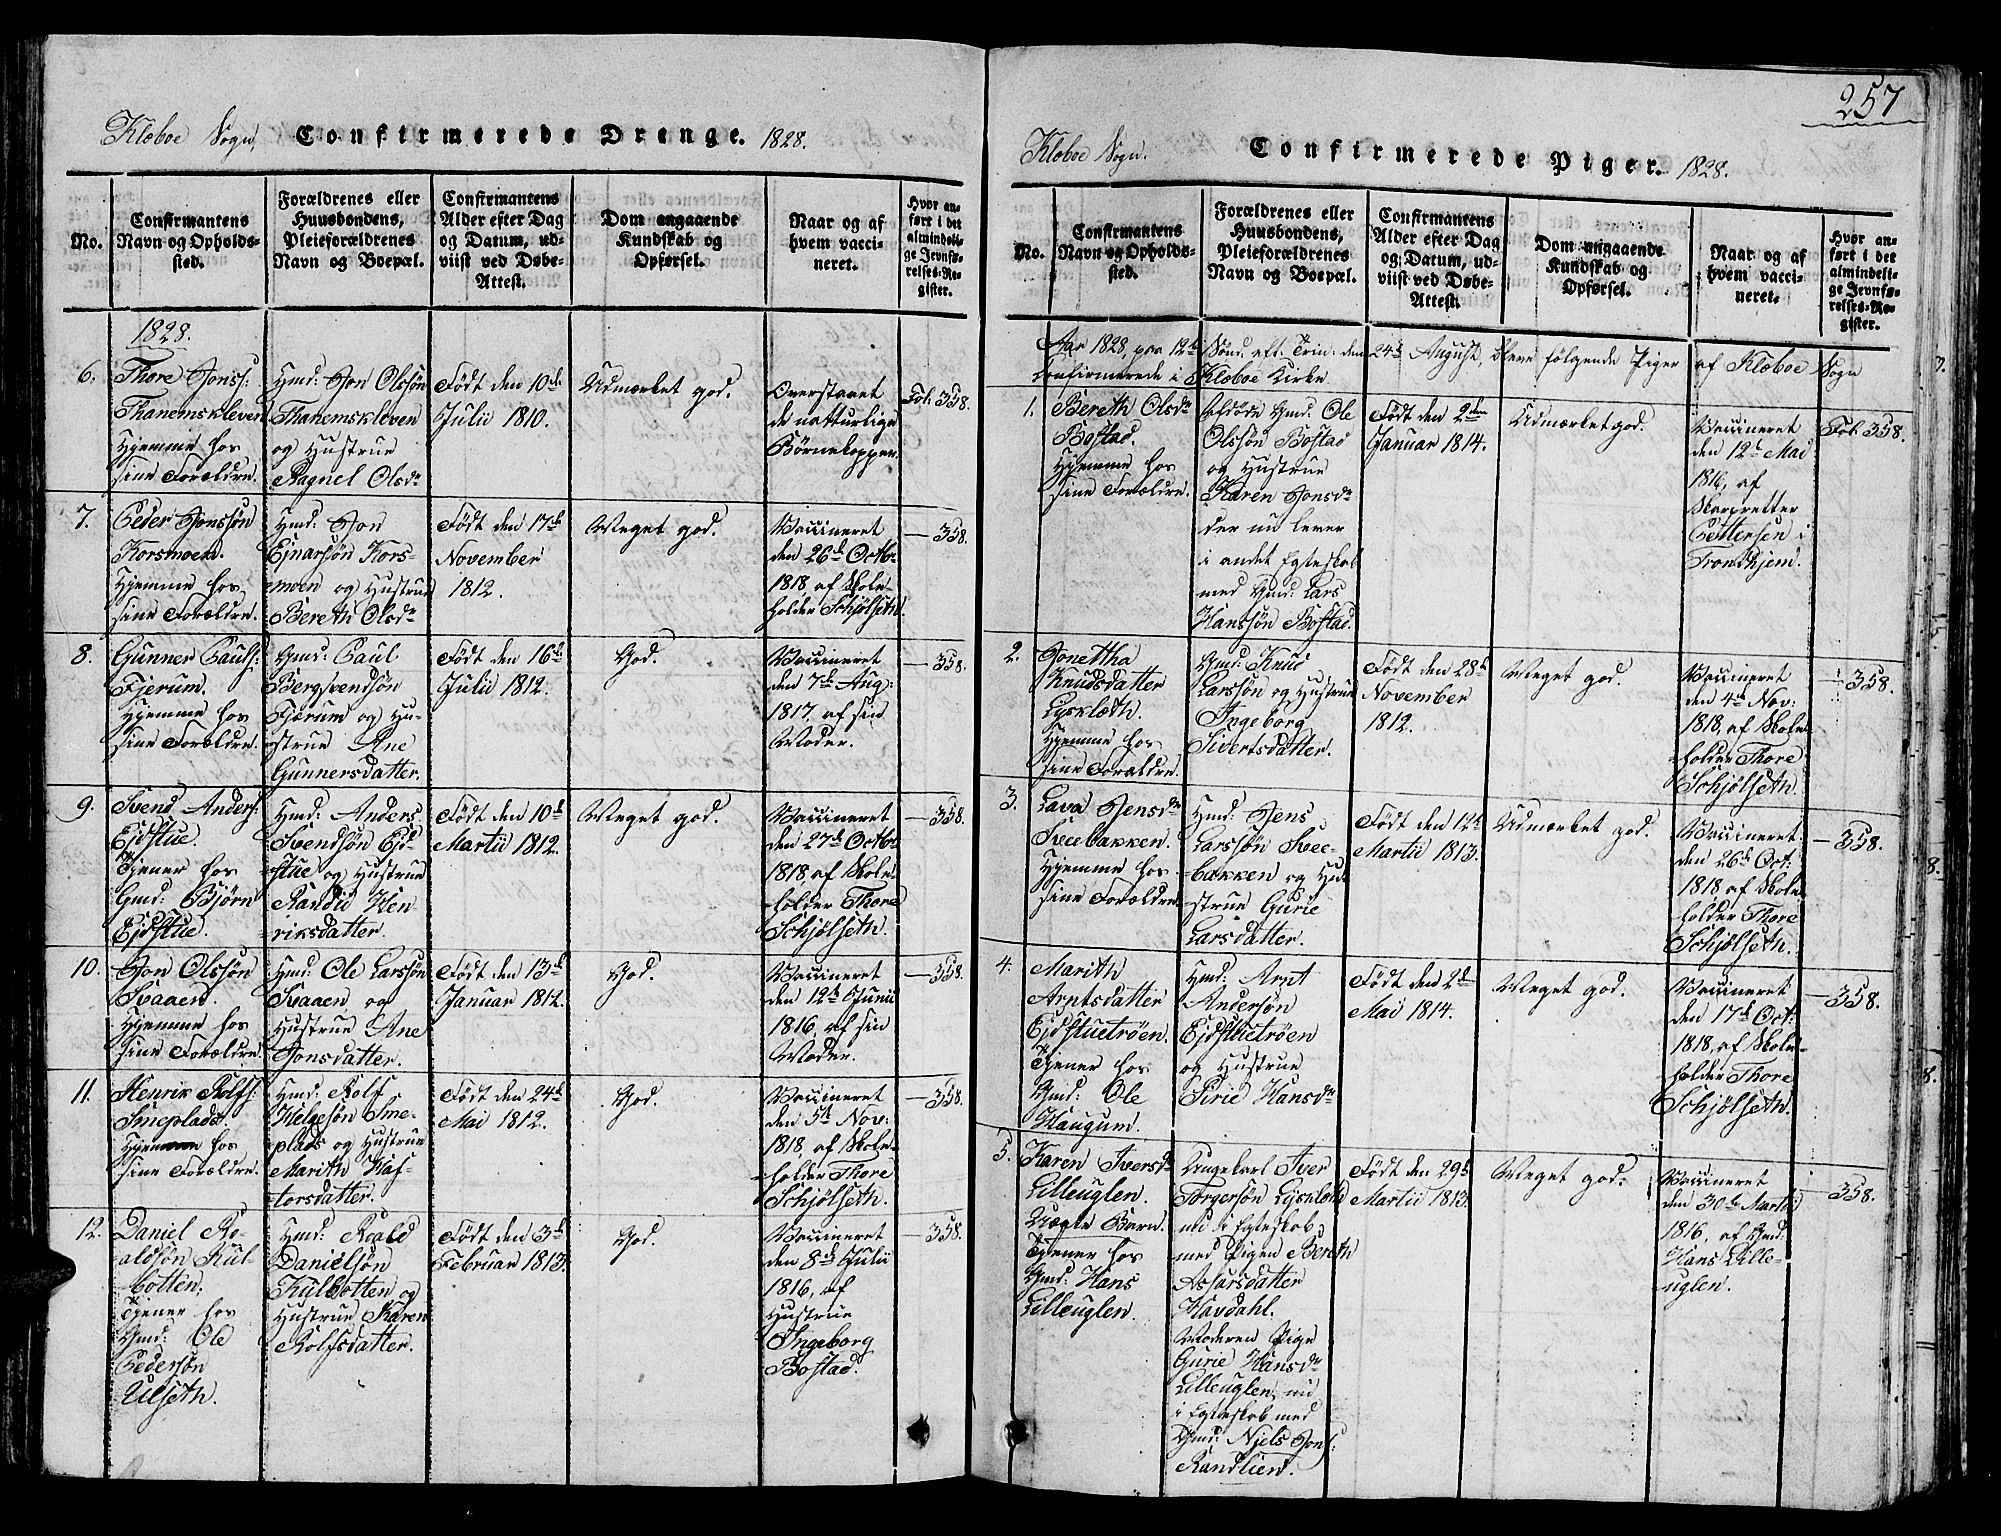 Klæboe Sogn, Confirmerede Drenge. 1828.
No.
Confirmantens
Navn og Opholds-
sted.
Forældrenes eller
Huusbondens,
Pleieforældrenes
Navn og Boepæl.
Confirmantens
Alder efter Dag
og Datum, ud-
viist ved Døbe-
Attest.
Dom angaaende
Kundskab og
Opførsel.
Naar og af
hvem vacci-
neret.
Hvor an-
ført i det
almindeli-
ge Jevnfø-
relses-Re-
gister.
1828.
6.
Thore Jonss:
Thanemskleven
Hjemme hos
sine Forældre.
Hmd: Jon Olssøn
Thanemskleven
og Hustrue
Ragnel Olsdr
Født den 10de
Julii 1810.
Udmærket god.
Overstaaet
de naturlige
Børnekopper.
Fol. 358.
7.
Peder Jonssøn
Korsmoen.
Hjemme hos
sine Forældre.
Hmd: Jon
Ejnarsøn Kors-
moen og Hustrue
Bereth Olsdr
Født den 17de
November
1812.
Meget god.
Vaccineret
den 26de Octbr
1818, af Skole-
holder Schjølseth.
— 358.
8.
Gunner Pauls:
Fjerum.
Hjemme hos
sine Forældre.
Gmd: Paul
Bergsvendsøn
Fjærum og Hu-
strue Ane
Gunnersdatter.
Født den 16de
Julii 1812.
God.
Vaccineret
den 7de Aug:
1817. af sin
Moder.
— 358.
9.
Svend Anders:
Ejdstue.
Tjener hos
Gmd: Bjørn
Ejdstue.
Hmd: Anders
Svendsøn Ejd-
stue og Hustrue
Randid Hen-
riksdatter.
Født den 10de
Martii 1812.
Meget god.
Vaccineret
den 27de Octbr
1818, af Skole-
holder Thore
Schjølseth.
— 358.
10.
Jon Olssøn
Svaaen.
Hjemme hos
sine Forældre.
Hmd: Ole Larssøn
Svaaen og
Hustrue Ane
Jonsdatter.
Født den 13de
Januar 1812.
God.
Vaccineret
den 12te Junii
1816, af sin
Moder.
— 358.
11.
Henrik Rolfs:
Smeplads.
Hjemme hos
sine Forældre.
Hmd: Rolf
Helgesøn Sme-
plads og Hustrue
Marith Haf-
torsdatter.
Født den 24de
Mai 1812.
God.
Vaccineret
den 5te Nov:
1818, af Skole-
holder Thore
Schjølseth.
— 358.
12.
Daniel Ro-
aldsøn Kul-
botten.
Tjener hos
Gmd: Ole
Pedersøn
Ulseth.
Hmd: Roald
Danielsøn
Kulbotten og
Hustrue Karen
Rolfsdatter.
Født den 3de
Februar 1813.
God.
Vaccineret
den 8de Julii
1816, af
Hustrue
Ingeborg
Bostad.
— 358.
257
Klæboe Sogn. Confirmerede Piger. 1828.
No.
Confirmantens
Navn og Opholds-
sted.
Forældrenes eller
Huusbondens,
Pleieforældrenes
Navn og Boepæl.
Confirmantens
Alder efter Dag
og Datum, ud-
viist ved Døbe-
Attest.
Dom angaaende
Kundskab og
Opførsel.
Naar og af
hvem vacci-
neret.
Hvor an-
ført i det
almindeli-
ge Jevnfø-
relses-Re-
gister.
Aar 1828, paa 12te Sønd. eft. Trin. den 24de August, bleve følgende Piger af Klæboe Sogn
confirmerede i Klæboe Kirke
1.
Bereth Olsdr
Bostad.
Hjemme hos
sine Forældre.
Afdøde Gmd: Ole
Olssøn Bostad
og Hustrue
Karen Jonsdr
der nu lever
i andet Egteskab
med Gmd: Lars
Hanssøn Bostad.
Født den 2den
Januar 1814.
Udmærket god.
Vaccineret
den 12te Mai
1816, af
Skarpretter
Pettersen i
Trondhjem.
Fol. 358.
2.
Jonettha
Knudsdatter
Lysklæth.
Hjemme hos
sine Forældre.
Gmd: Knud
Larssøn og Hustrue
Ingeborg
Sivertsdatter.
Født den 28de
November
1812.
Meget god.
Vaccineret
den 4de Nov:
1818, af Skole-
holder Thore
Schjølseth.
— 358.
3.
Lava Jensdr
Sveebakken.
Hjemme hos
sine Forældre.
Hmd: Jens
Larssøn Svee-
bakken og Hu-
strue Gurie
Larsdatter.
Født den 12te
Martii 1813.
Udmærket god.
Vaccineret
den 26de Oct:
1818 af Skole-
holder Thore
Schjølseth.
— 358.
4.
Marith
Arntsdatter
Ejdstuetrøen.
Tjener hos
Gmd: Ole
Haugum.
Hmd: Arnt
Andersøn
Ejdstuetrøen
og Hustrue
Sirie Hansdr
Født den 2de
Mai 1814.
Meget god.
Vaccineret
den 17de Oct:
1818, af Skole-
holder Thore
Schjølseth.
— 358.
5.
Karen Iversdr
Lilleuglen.
Uægte Barn.
Tjener hos
Gmd: Hans
Lilleuglen.
Ungekarl Iver
Torgersøn Lysklæth
nu i Egteskab
med Pigen Bereth
Assarsdatter
Havdahl.
Moderen Pige
Gurie Hansdr
Lilleuglen, nu
i Egteskab med
Gmd: Niels Jons:
Randlien.
Født den 29de
Martii 1813.
Meget god.
Vaccineret
den 30te Martii
1816, af Gmd:
Hans Lille-
uglen.
— 358.